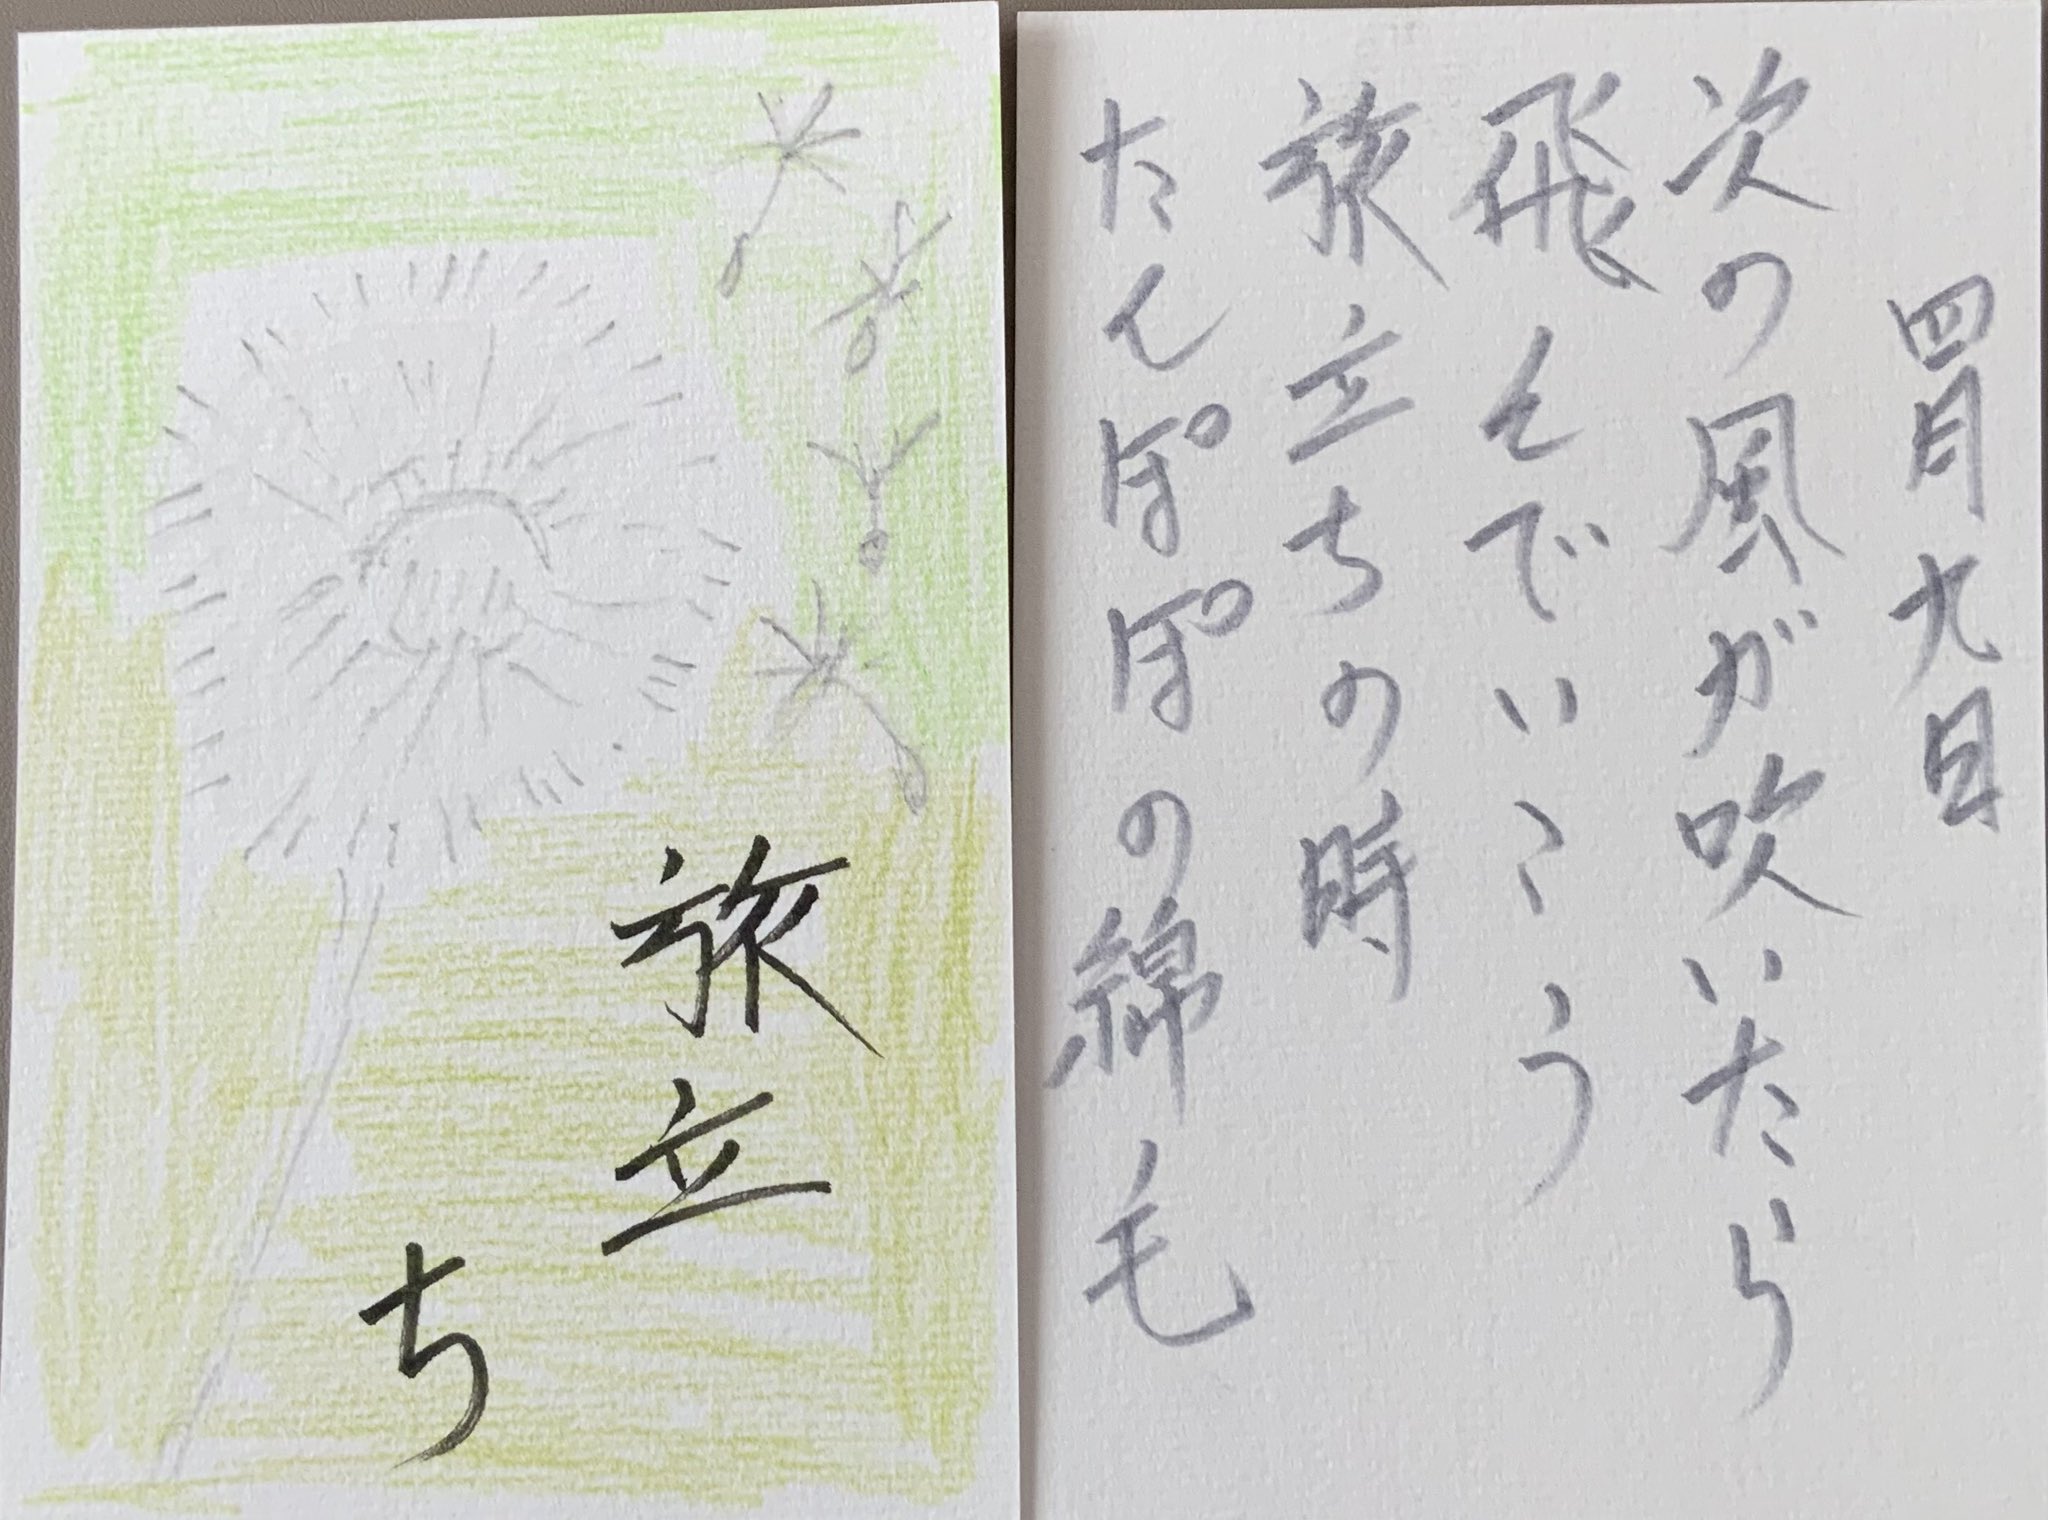 旅立ち
四月九日
次の風が吹いたら
飛んでいこう
旅立ちの時
たんぽぽの綿毛